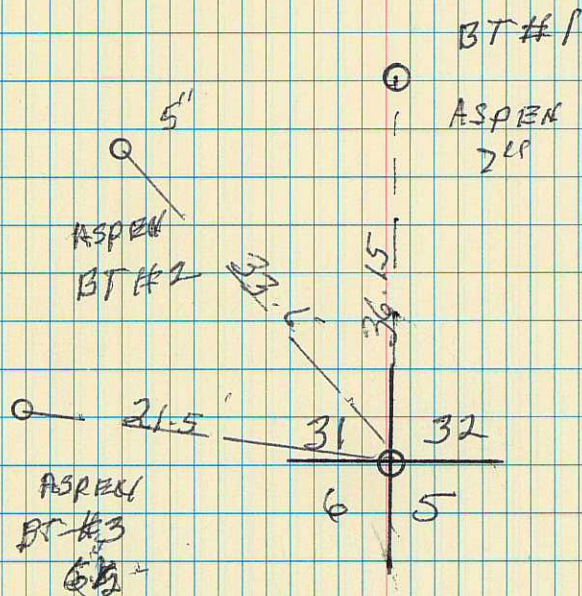 BT #1
ASPEN
5"
ASPEN
BT #2
36.15
21.5'
31 32
6 5
ASPEN
BT #3